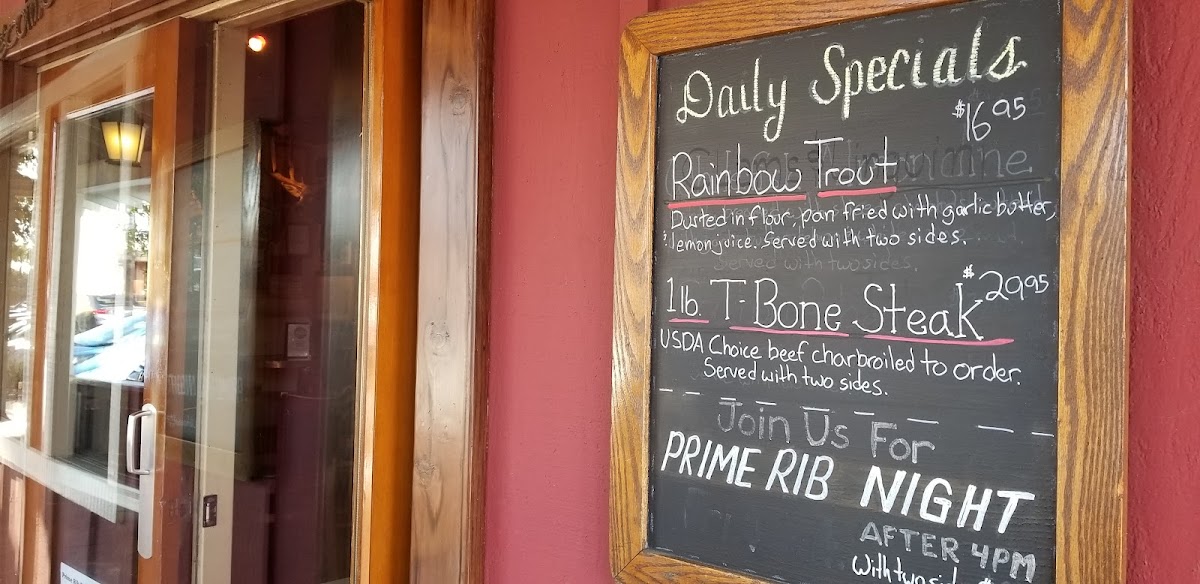 Daily Specials
$16.95
Rainbow Trout
Dusted in flour, pan fried with garlic butter,
& lemon juice. Served with two sides.
Served with two sides.
1 lb. T-Bone Steak $29.95
USDA Choice beef charbroiled to order.
Served with two sides.
Join Us For
PRIME RIB NIGHT
AFTER 4PM
With two